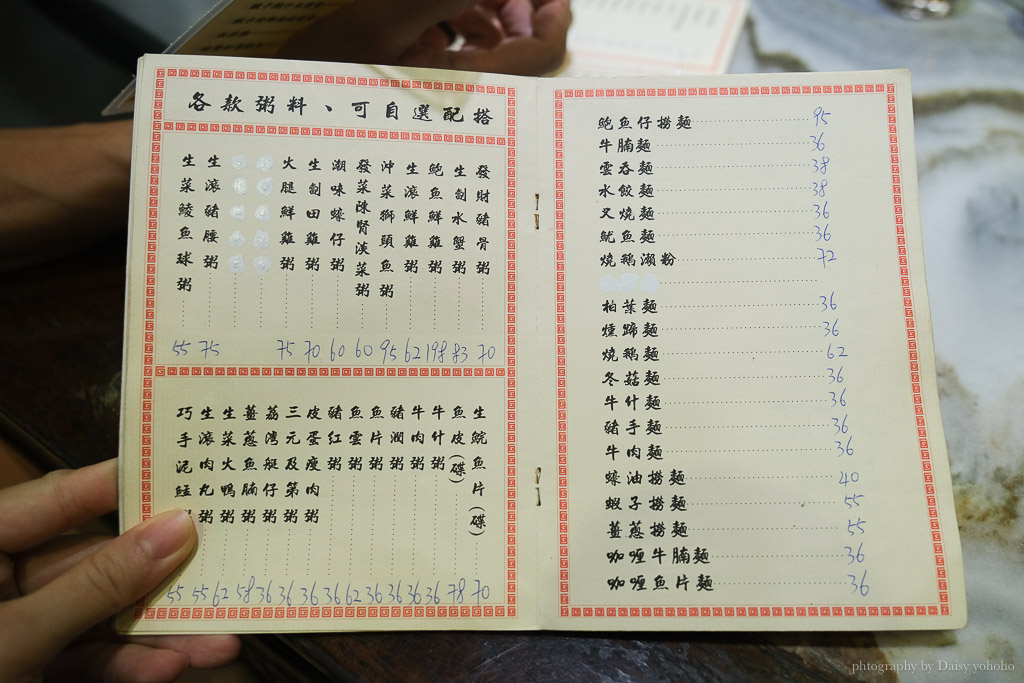 各款粥料、可自選配搭
發財豬骨粥 70
生劏水蟹粥 83
鮑魚鮮雞粥 198
生滾鮮雞粥 62
沖菜獅頭魚粥 95
發菜陳腎漢菜粥 60
潮味蠔仔粥 60
生劏田雞粥 70
火腿鮮雞粥 75
生滾豬腰粥 75
生菜鯪魚球粥 55
生鯇魚片(碟) 70
魚皮(碟) 78
牛什粥 36
牛肉粥 36
豬潤粥 36
魚片粥 36
魚雲粥 62
豬紅粥 36
皮蛋瘦肉粥 36
三元及第粥 36
荔灣艇仔粥 36
薑蔥魚腩粥 58
生菜火鴨粥 62
生滾肉丸粥 55
巧手泥鯭 55
鮑魚仔撈麵 95
牛腩麵 36
雲吞麵 38
水餃麵 38
叉燒麵 36
魷魚麵 36
燒鵝瀨粉 72
柏葉麵 36
燻蹄麵 36
燒鵝麵 62
冬菇麵 36
牛什麵 36
豬手麵 36
牛肉麵 36
蠔油撈麵 40
蝦子撈麵 55
薑蔥撈麵 55
咖喱牛腩麵 36
咖喱魚片麵 36
phtography by Daisy yohoho